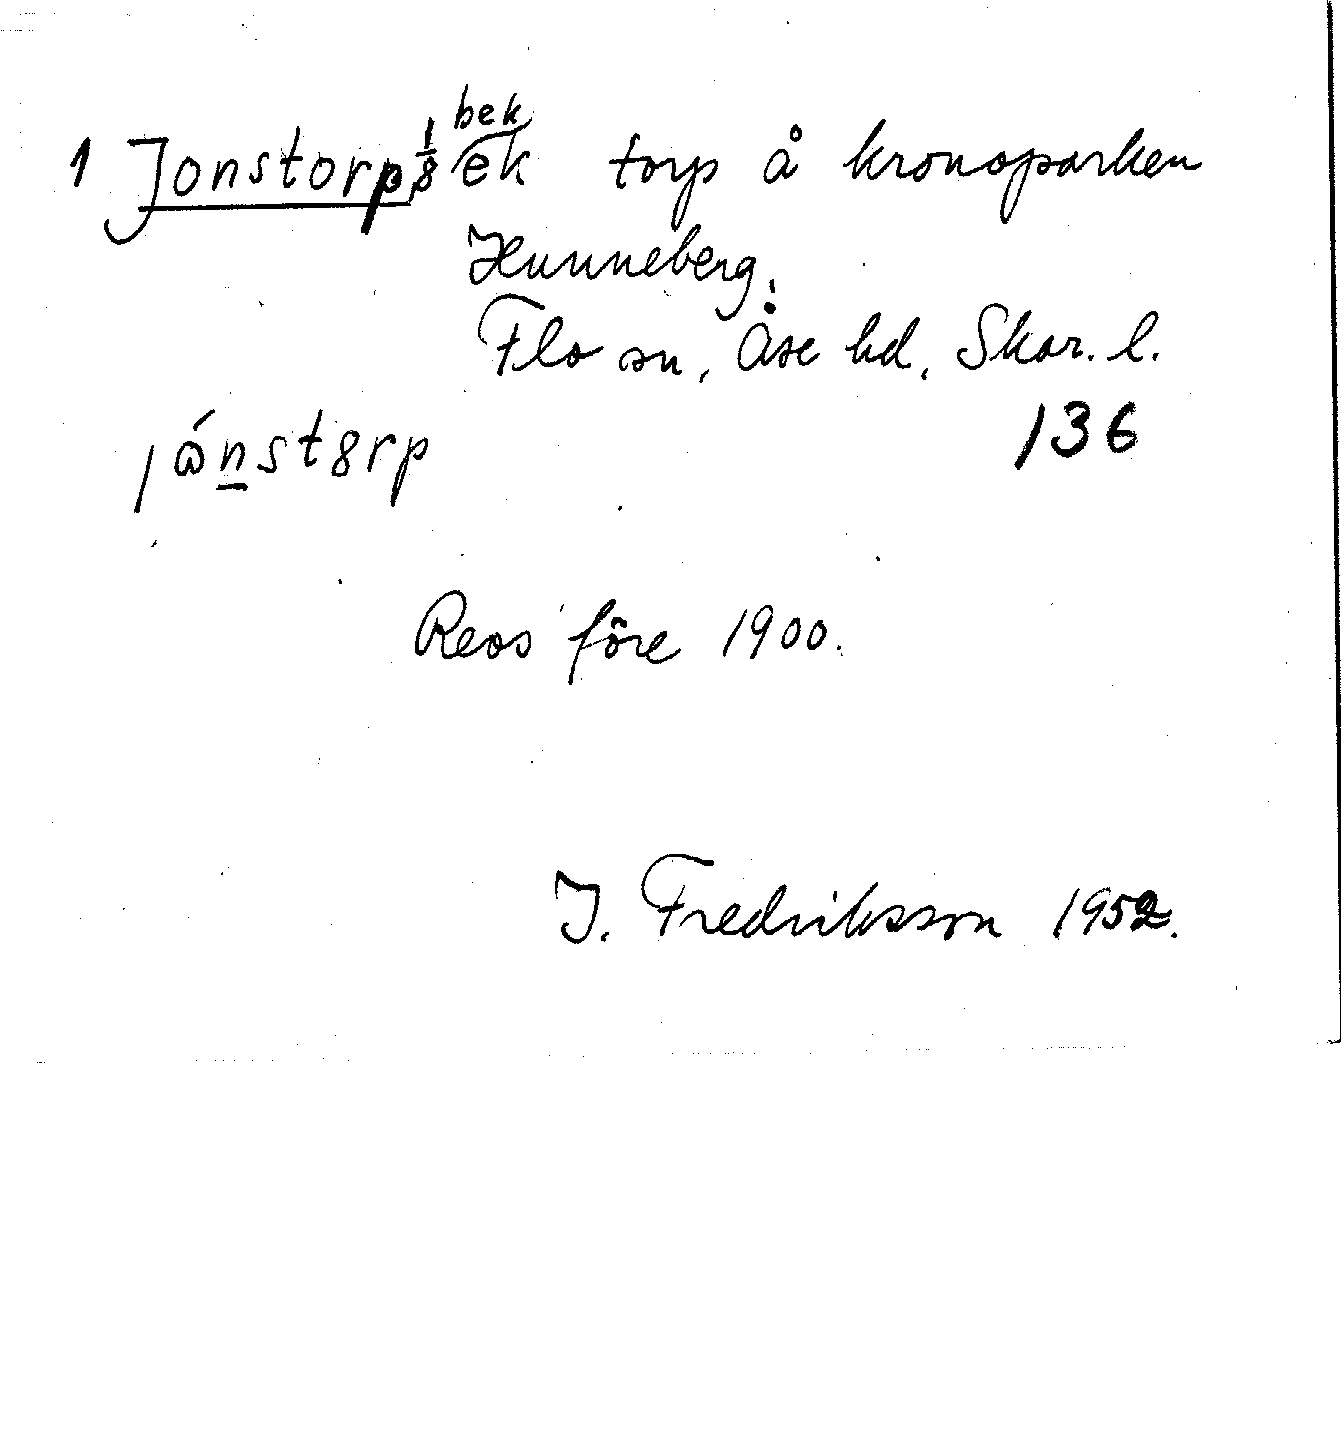 1 Jonstorp, 1/8 bek ek torp å kronoparken
Hunneberg.
Flo sn, Åse hd, Skar. l.
136
Revs före 1900.
J. Fredriksson 1952.